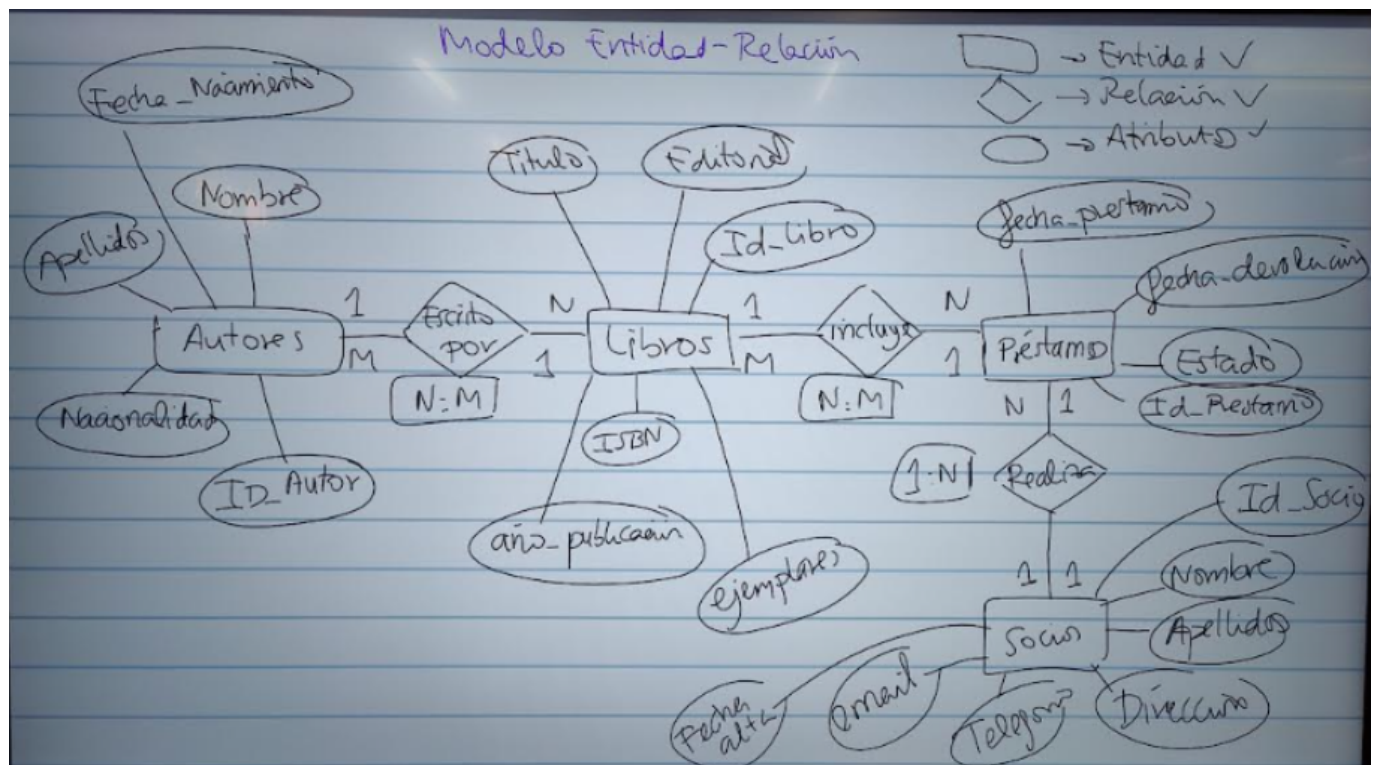 Modelo Entidad-Relación
→ Entidad ✓
→ Relación ✓
→ Atributo ✓
Fecha_Nacimiento
Nombre
Apellidos
Autores
Nacionalidad
ID_Autor
1
M
Escrito
por
N
1
N:M
Titulo
Editorial
Id_Libro
Libros
ISBN
año_publicación
ejemplares
1
M
incluye
N
1
N:M
fecha_prestamo
fecha_devolución
Préstamo
Estado
Id_Prestamo
N 1
1:N
Realiza
1 1
Id_Socio
Nombre
Socios
Apellidos
Dirección
Telefono
email
Fecha
alta